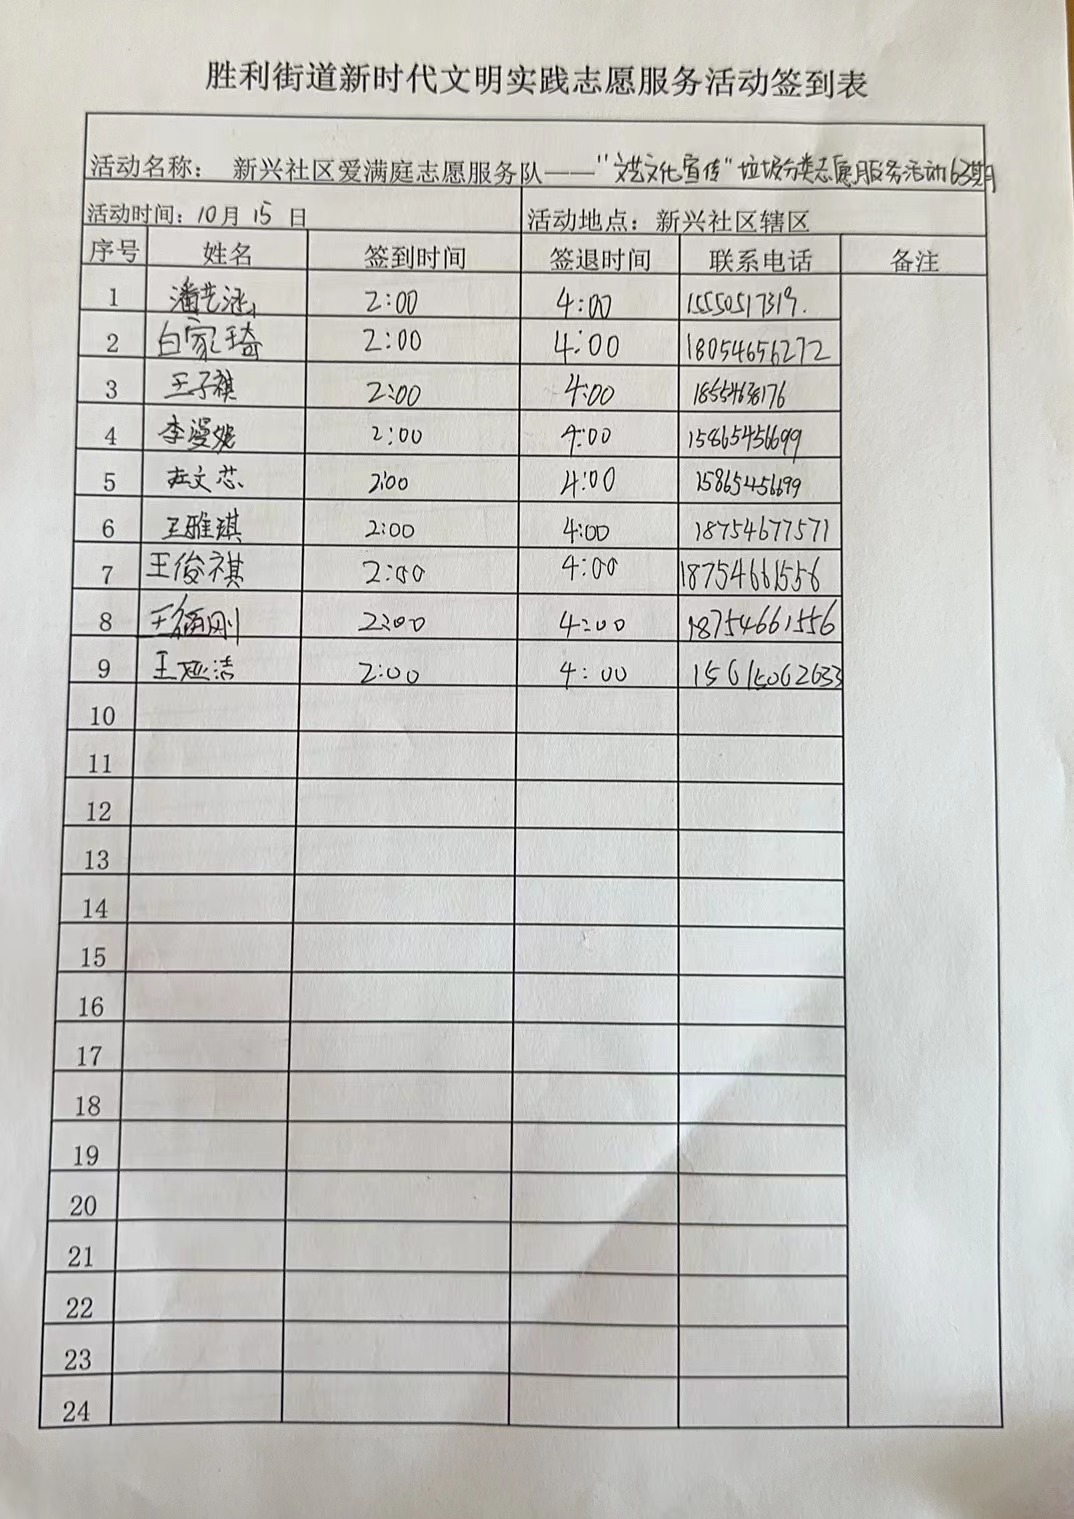 胜利街道新时代文明实践志愿服务活动签到表
活动名称： 新兴社区爱满庭志愿服务队——"文艺文化宣传"垃圾分类志愿服务活动63期
活动时间：10月 15 日 活动地点：新兴社区辖区
序号 姓名 签到时间 签退时间 联系电话 备注
1 潘艺涵 2:00 4:00 15550517319.
2 白家琦 2:00 4:00 18054656272
3 王子祺 2:00 4:00
4 李漫妮 2:00 4:00 15865456699
5 文芯 2:00 4:00 15865456699
6 王雅琪 2:00 4:00 18754677571
7 王俊祺 2:00 4:00 18754661556
8 王 刚 2:00 4:00 18754661556
9 王 洁 2:00 4:00 15615062633
10
11
12
13
14
15
16
17
18
19
20
21
22
23
24